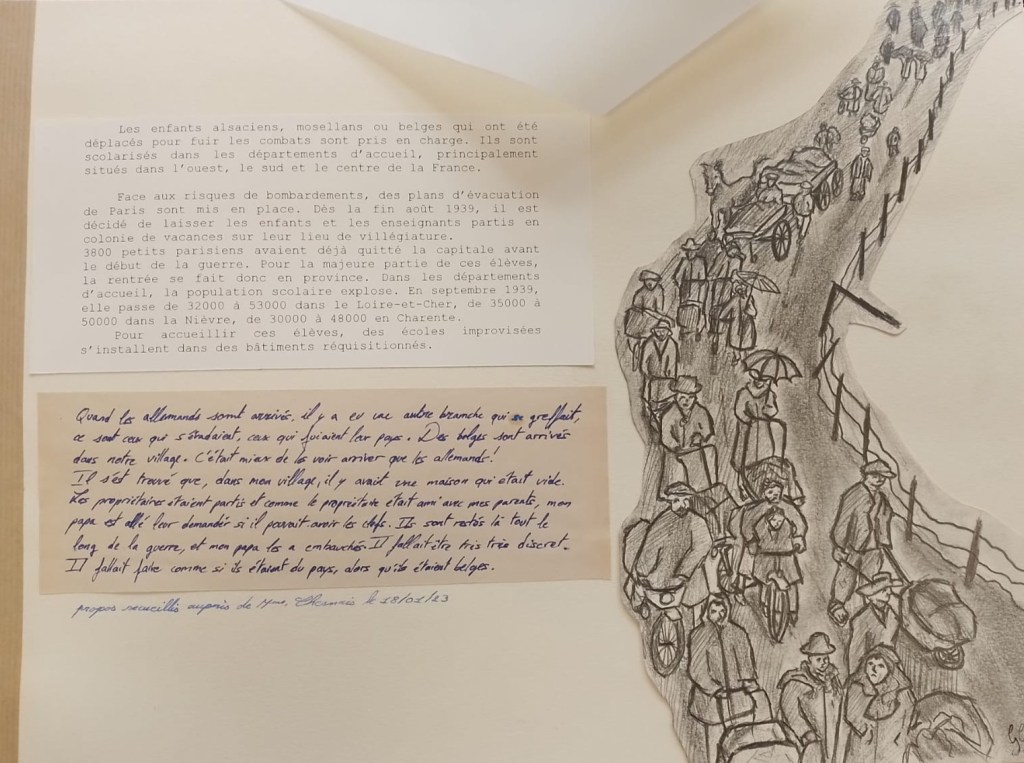 Les enfants alsaciens, mosellans ou belges qui ont été
déplacés pour fuir les combats sont pris en charge. Ils sont
scolarisés dans les départements d'accueil, principalement
situés dans l'ouest, le sud et le centre de la France.
Face aux risques de bombardements, des plans d'évacuation
de Paris sont mis en place. Dès la fin août 1939, il est
décidé de laisser les enfants et les enseignants partis en
colonie de vacances sur leur lieu de villégiature.
3800 petits parisiens avaient déjà quitté la capitale avant
le début de la guerre. Pour la majeure partie de ces élèves,
la rentrée se fait donc en province. Dans les départements
d'accueil, la population scolaire explose. En septembre 1939,
elle passe de 32000 à 53000 dans le Loire-et-Cher, de 35000 à
50000 dans la Nièvre, de 30000 à 48000 en Charente.
Pour accueillir ces élèves, des écoles improvisées
s'installent dans des bâtiments réquisitionnés.
Quand les allemands sont arrivés, il y a eu une autre branche qui se greffait,
ce sont ceux qui s'évadaient, ceux qui fuiaient leur pays. Des belges sont arrivés
dans notre village. C'était mieux de les voir arriver que les allemands!
Il s'est trouvé que, dans mon village, il y avait une maison qui était vide.
Les propriétaires étaient partis et comme le propriétaire était ami avec mes parents, mon
papa est allé leur demander si il pouvait avoir les clefs. Ils sont restés là tout le
long de la guerre, et mon papa les a embauchés. Il fallait être très très discret.
Il fallait faire comme si ils étaient du pays, alors qu'ils étaient belges.
propos recueillis auprès de Mme. le 18/01/23